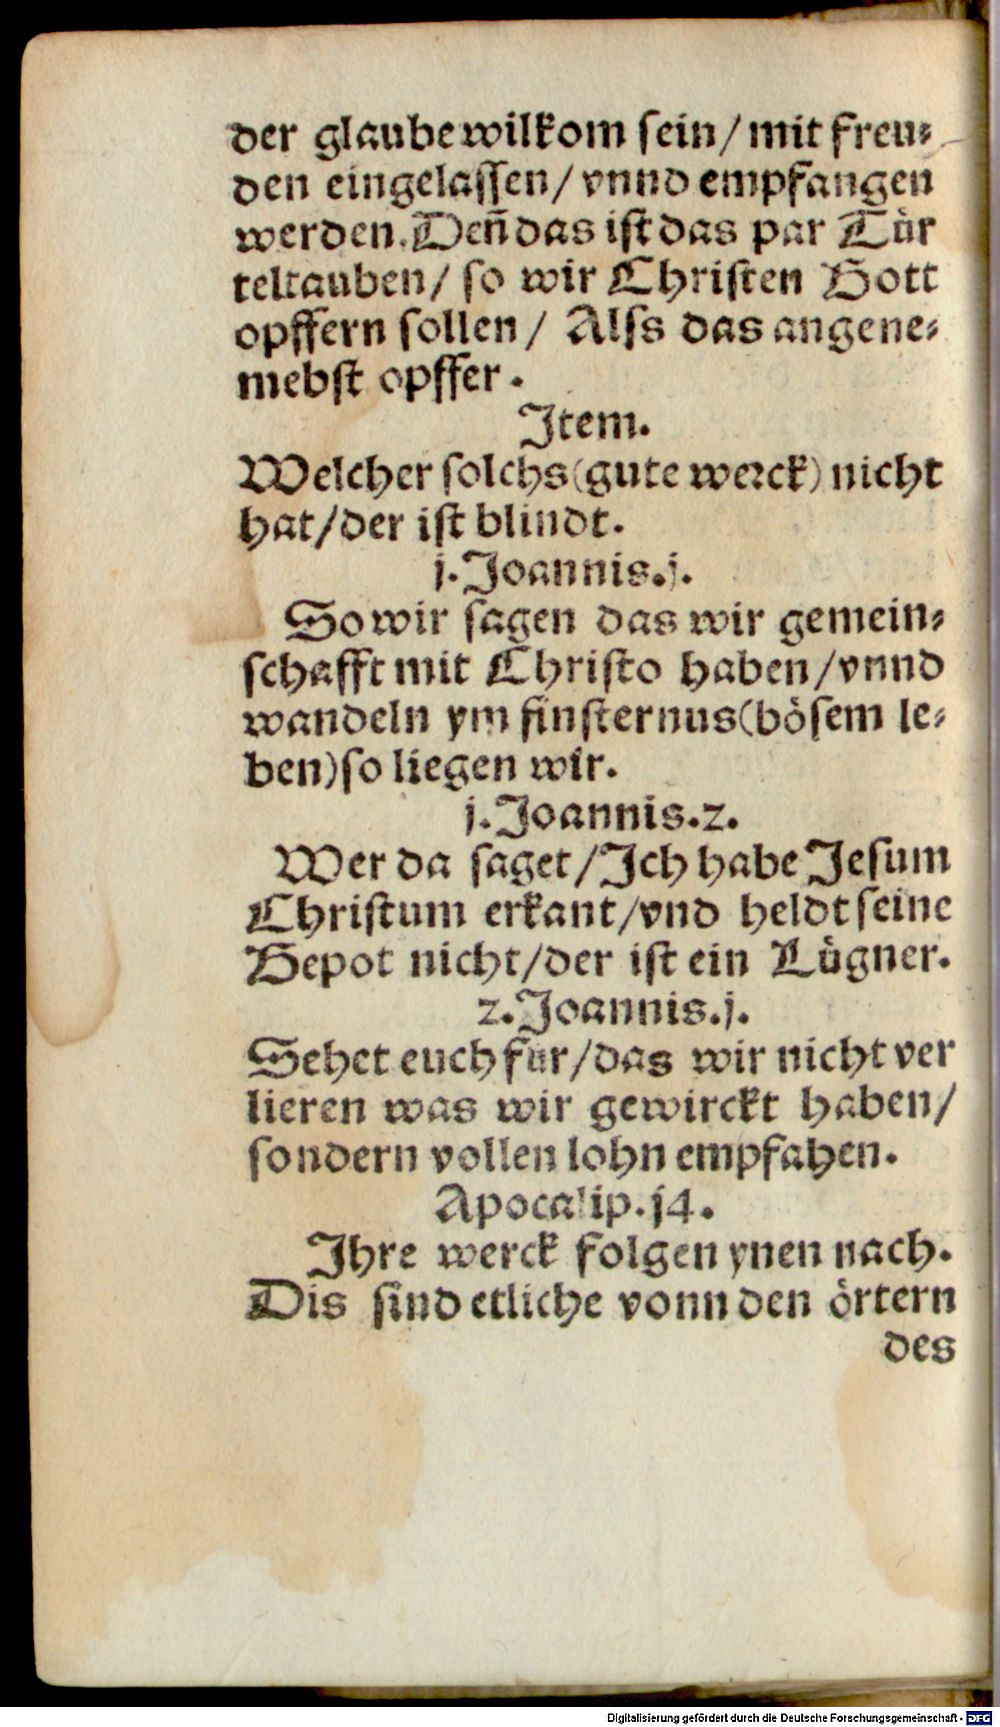 der glaube wilkom ſein/ mit freu⸗
den eingelaſſen/ vnnd empfangen
werden. Deñ das iſt das par Tür
teltauben/ ſo wir Chriſten Gott
opffern ſollen/ Alſs das angene⸗
mebſt opffer.
Item.
Welcher ſolchs (gute werck) nicht
hat/ der iſt blindt.
j. Joannis. j.
So wir ſagen das wir gemein⸗
ſchafft mit Chriſto haben/ vnnd
wandeln ym finſternus (böſem le⸗
ben) ſo liegen wir.
j. Joannis. 2.
Wer da ſaget/ Ich habe Jeſum
Chriſtum erkant/ vnd heldt ſeine
Gepot nicht/ der iſt ein Lügner.
2. Joannis. j.
Sehet euch für/ das wir nicht ver
lieren was wir gewirckt haben/
ſondern vollen lohn empfahen.
Apocalip. j4.
Ihre werck folgen ynen nach.
Dis ſind etliche vonn den örtern
des
Digitalisierung gefördert durch die Deutsche Forschungsgemeinschaft - DFG